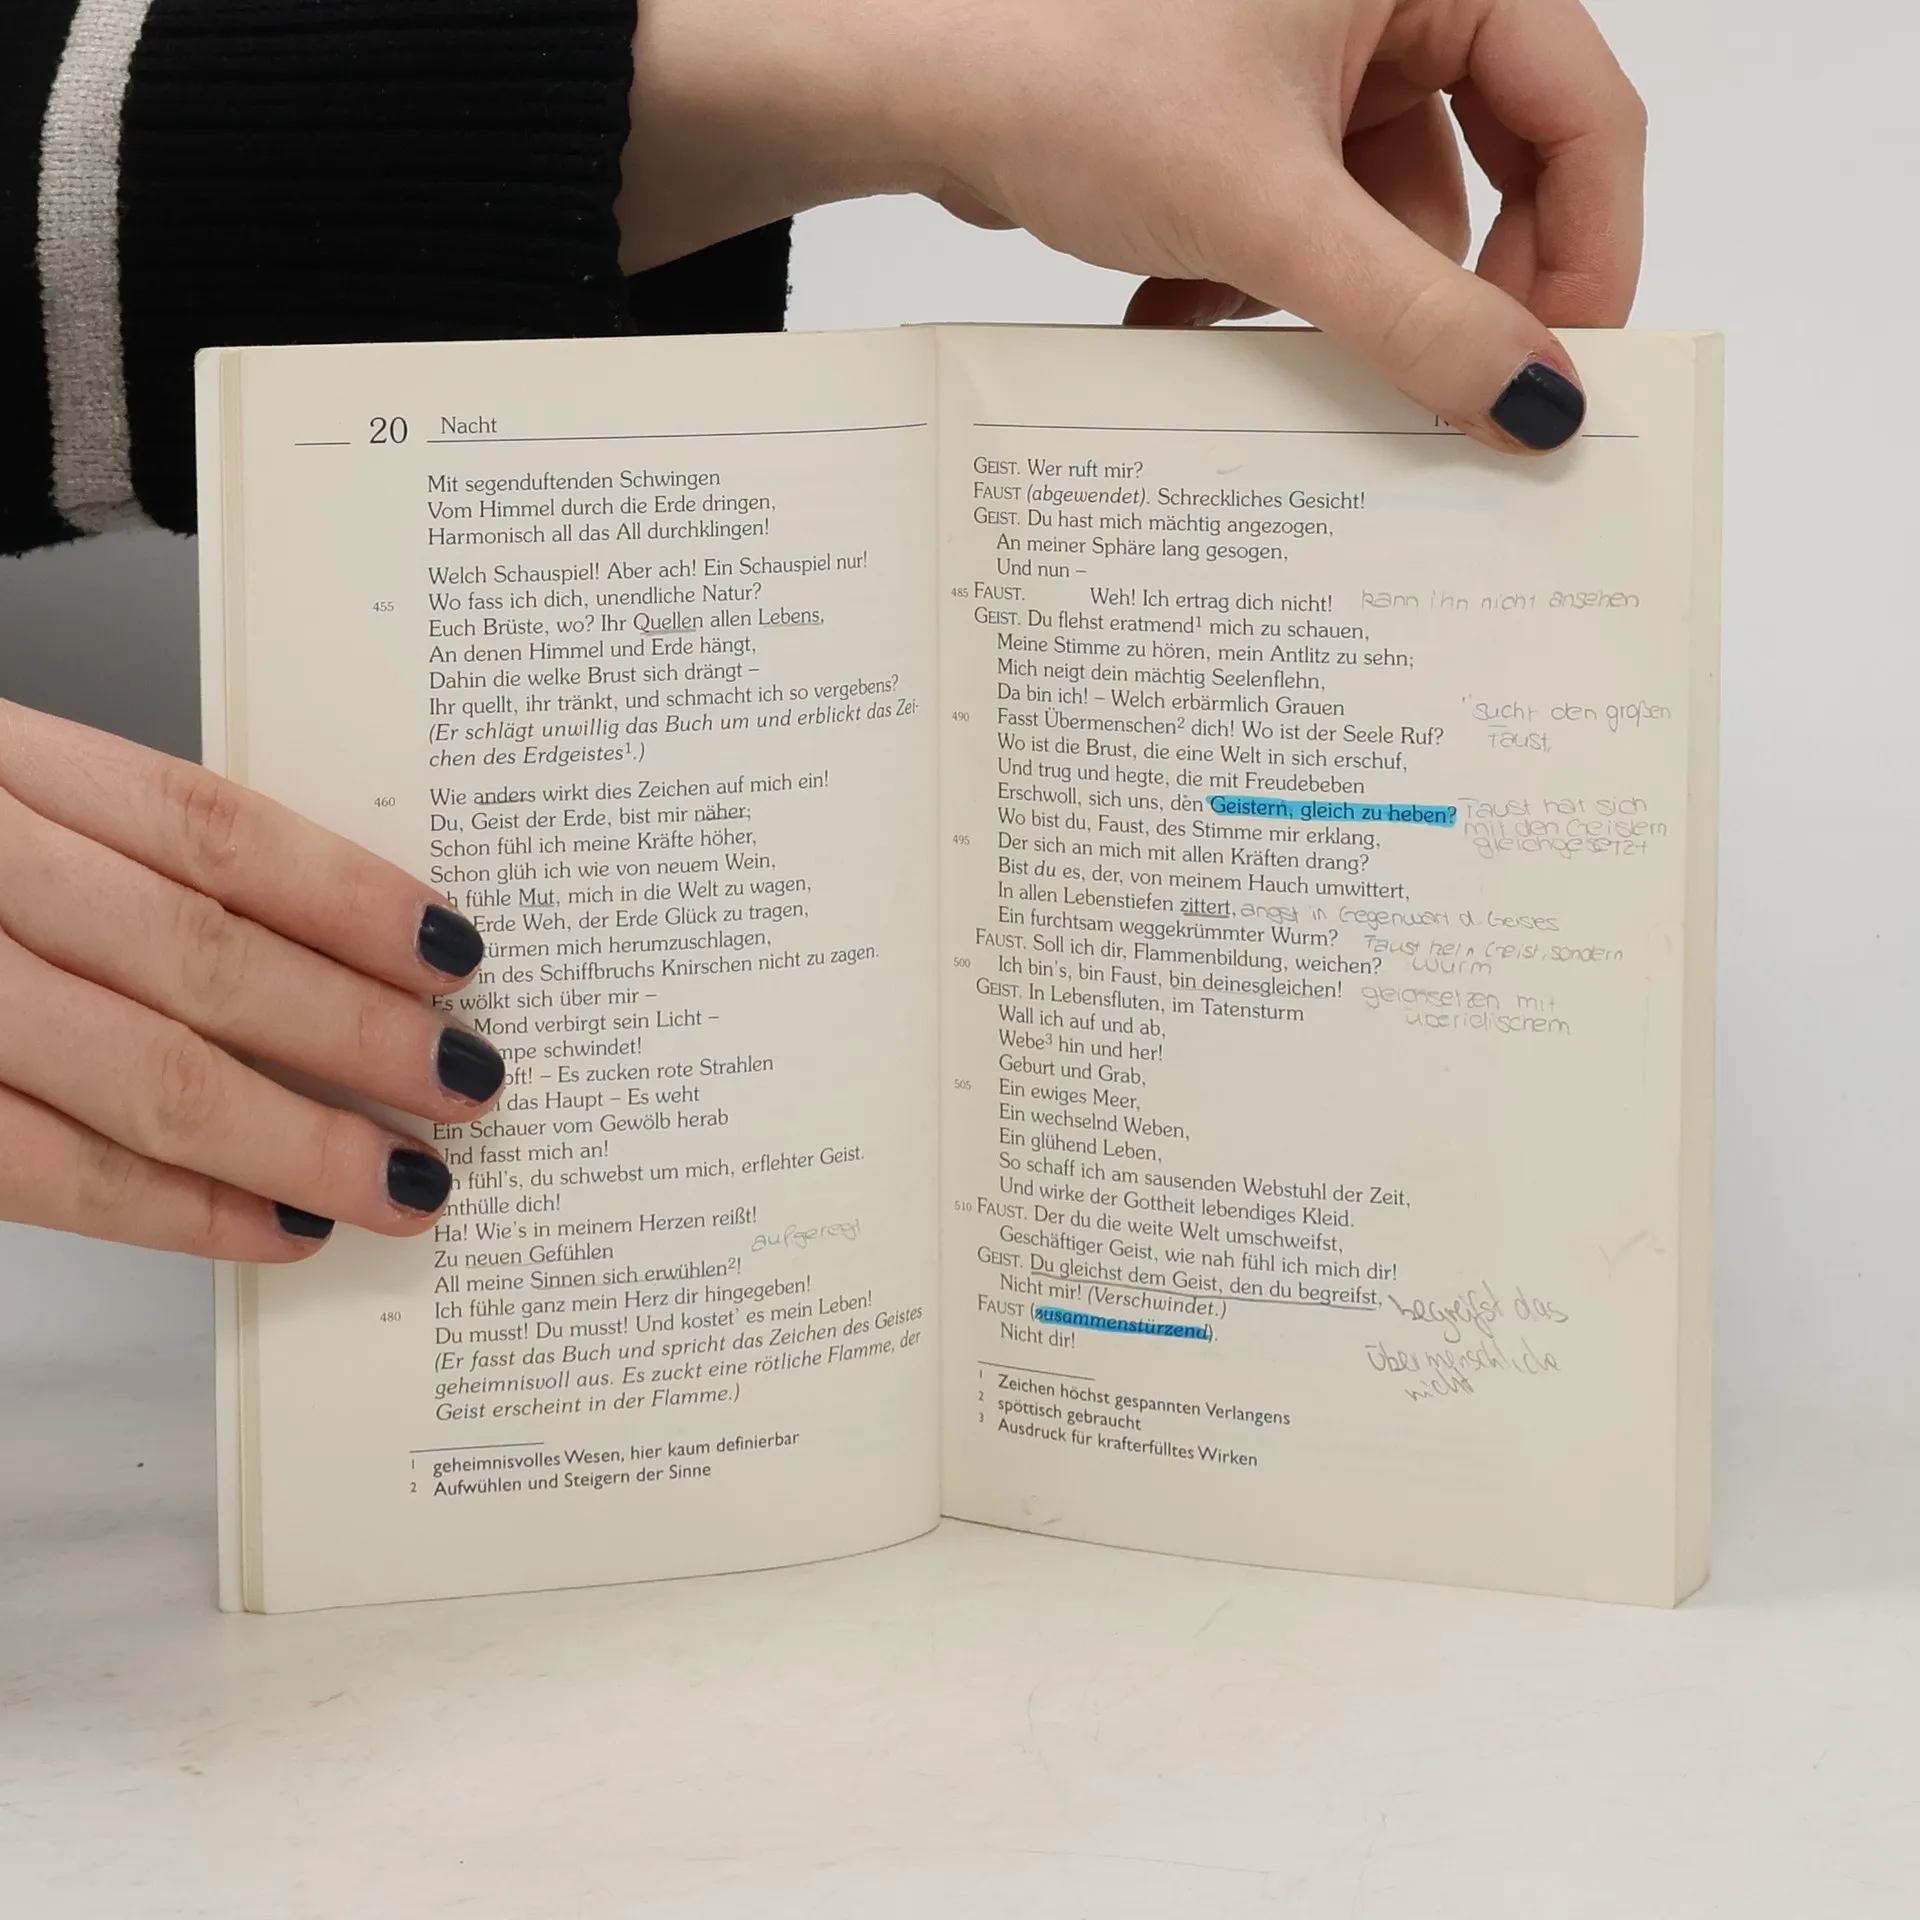 20 Nacht
Mit segenduftenden Schwingen
Vom Himmel durch die Erde dringen,
Harmonisch all das All durchklingen!
Welch Schauspiel! Aber ach! Ein Schauspiel nur!
455 Wo fass ich dich, unendliche Natur?
Euch Brüste, wo? Ihr Quellen allen Lebens,
An denen Himmel und Erde hängt,
Dahin die welke Brust sich drängt –
Ihr quellt, ihr tränkt, und schmacht ich so vergebens?
(Er schlägt unwillig das Buch um und erblickt das Zei-
chen des Erdgeistes¹.)
460 Wie anders wirkt dies Zeichen auf mich ein!
Du, Geist der Erde, bist mir näher;
Schon fühl ich meine Kräfte höher,
Schon glüh ich wie von neuem Wein,
fühle Mut, mich in die Welt zu wagen,
Erde Weh, der Erde Glück zu tragen,
türmen mich herumzuschlagen,
in des Schiffbruchs Knirschen nicht zu zagen.
Es wölkt sich über mir –
Mond verbirgt sein Licht –
mpe schwindet!
pft! – Es zucken rote Strahlen
das Haupt – Es weht
Ein Schauer vom Gewölb herab
Und fasst mich an!
h fühl's, du schwebst um mich, erflehter Geist.
nthülle dich!
Ha! Wie's in meinem Herzen reißt!
Zu neuen Gefühlen aufgeregt
All meine Sinnen sich erwühlen²!
480 Ich fühle ganz mein Herz dir hingegeben!
Du musst! Du musst! Und kostet' es mein Leben!
(Er fasst das Buch und spricht das Zeichen des Geistes
geheimnisvoll aus. Es zuckt eine rötliche Flamme, der
Geist erscheint in der Flamme.)
1 geheimnisvolles Wesen, hier kaum definierbar
2 Aufwühlen und Steigern der Sinne
GEIST. Wer ruft mir?
FAUST (abgewendet). Schreckliches Gesicht!
GEIST. Du hast mich mächtig angezogen,
An meiner Sphäre lang gesogen,
Und nun –
485 FAUST. Weh! Ich ertrag dich nicht! kann ihn nicht ansehen
GEIST. Du flehst eratmend¹ mich zu schauen,
Meine Stimme zu hören, mein Antlitz zu sehn;
Mich neigt dein mächtig Seelenflehn,
Da bin ich! – Welch erbärmlich Grauen
490 Fasst Übermenschen² dich! Wo ist der Seele Ruf? sucht den großen
Faust,
Wo ist die Brust, die eine Welt in sich erschuf,
Und trug und hegte, die mit Freudebeben
Erschwoll, sich uns, den Geistern, gleich zu heben? Faust hat sich
mit den Geistern
gleichgesetzt
Wo bist du, Faust, des Stimme mir erklang,
495 Der sich an mich mit allen Kräften drang?
Bist du es, der, von meinem Hauch umwittert,
In allen Lebenstiefen zittert, angst in Gegenwart d. Geistes
Ein furchtsam weggekrümmter Wurm? Faust kein Geist, sondern
Wurm
FAUST. Soll ich dir, Flammenbildung, weichen?
500 Ich bin's, bin Faust, bin deinesgleichen! gleichsetzen mit
überirdischem
GEIST. In Lebensfluten, im Tatensturm
Wall ich auf und ab,
Webe³ hin und her!
Geburt und Grab,
505 Ein ewiges Meer,
Ein wechselnd Weben,
Ein glühend Leben,
So schaff ich am sausenden Webstuhl der Zeit,
Und wirke der Gottheit lebendiges Kleid.
510 FAUST. Der du die weite Welt umschweifst,
Geschäftiger Geist, wie nah fühl ich mich dir!
GEIST. Du gleichst dem Geist, den du begreifst, begreifst das
Übermenschliche
nicht
Nicht mir! (Verschwindet.)
FAUST (zusammenstürzend).
Nicht dir!
1 Zeichen höchst gespannten Verlangens
2 spöttisch gebraucht
3 Ausdruck für krafterfülltes Wirken